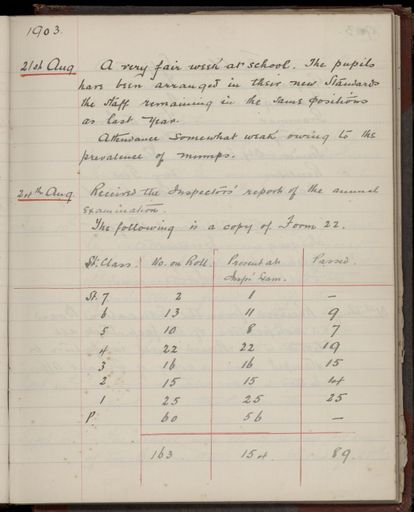 1903.
21st Aug A very fair week at school. The pupils
have been arranged in their new Standards
the Staff remaining in the same positions
as last year.
Attendance somewhat weak owing to the
prevalence of mumps.
Aug. Received the Inspectors' report of the annual
examination.
The following is a copy of Form 22.
St. Class. No. on Roll. Present at Passed.
Insps' Exam.
St. 7 2 1 –
6 13 11 9
5 10 8 7
4 22 22 19
3 16 16 15
2 15 15 14
1 25 25 25
P. 60 56 –
163 154 89